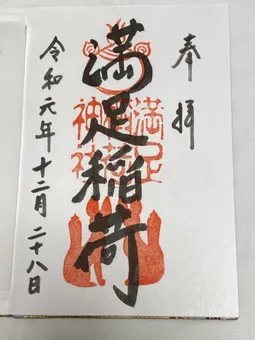 奉拝
満足稲荷
満足稲荷神社
令和元年十二月二十八日